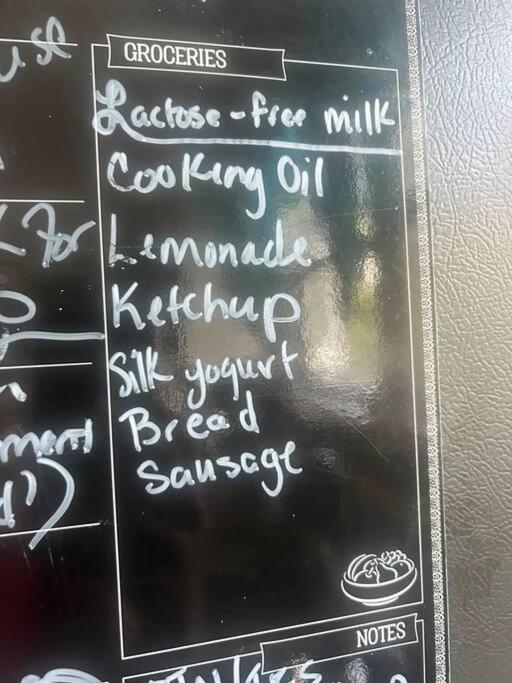 GROCERIES
Lactose-free milk
Cooking Oil
Lemonade
Ketchup
Silk yogurt
Bread
Sausage
For
ment
NOTES